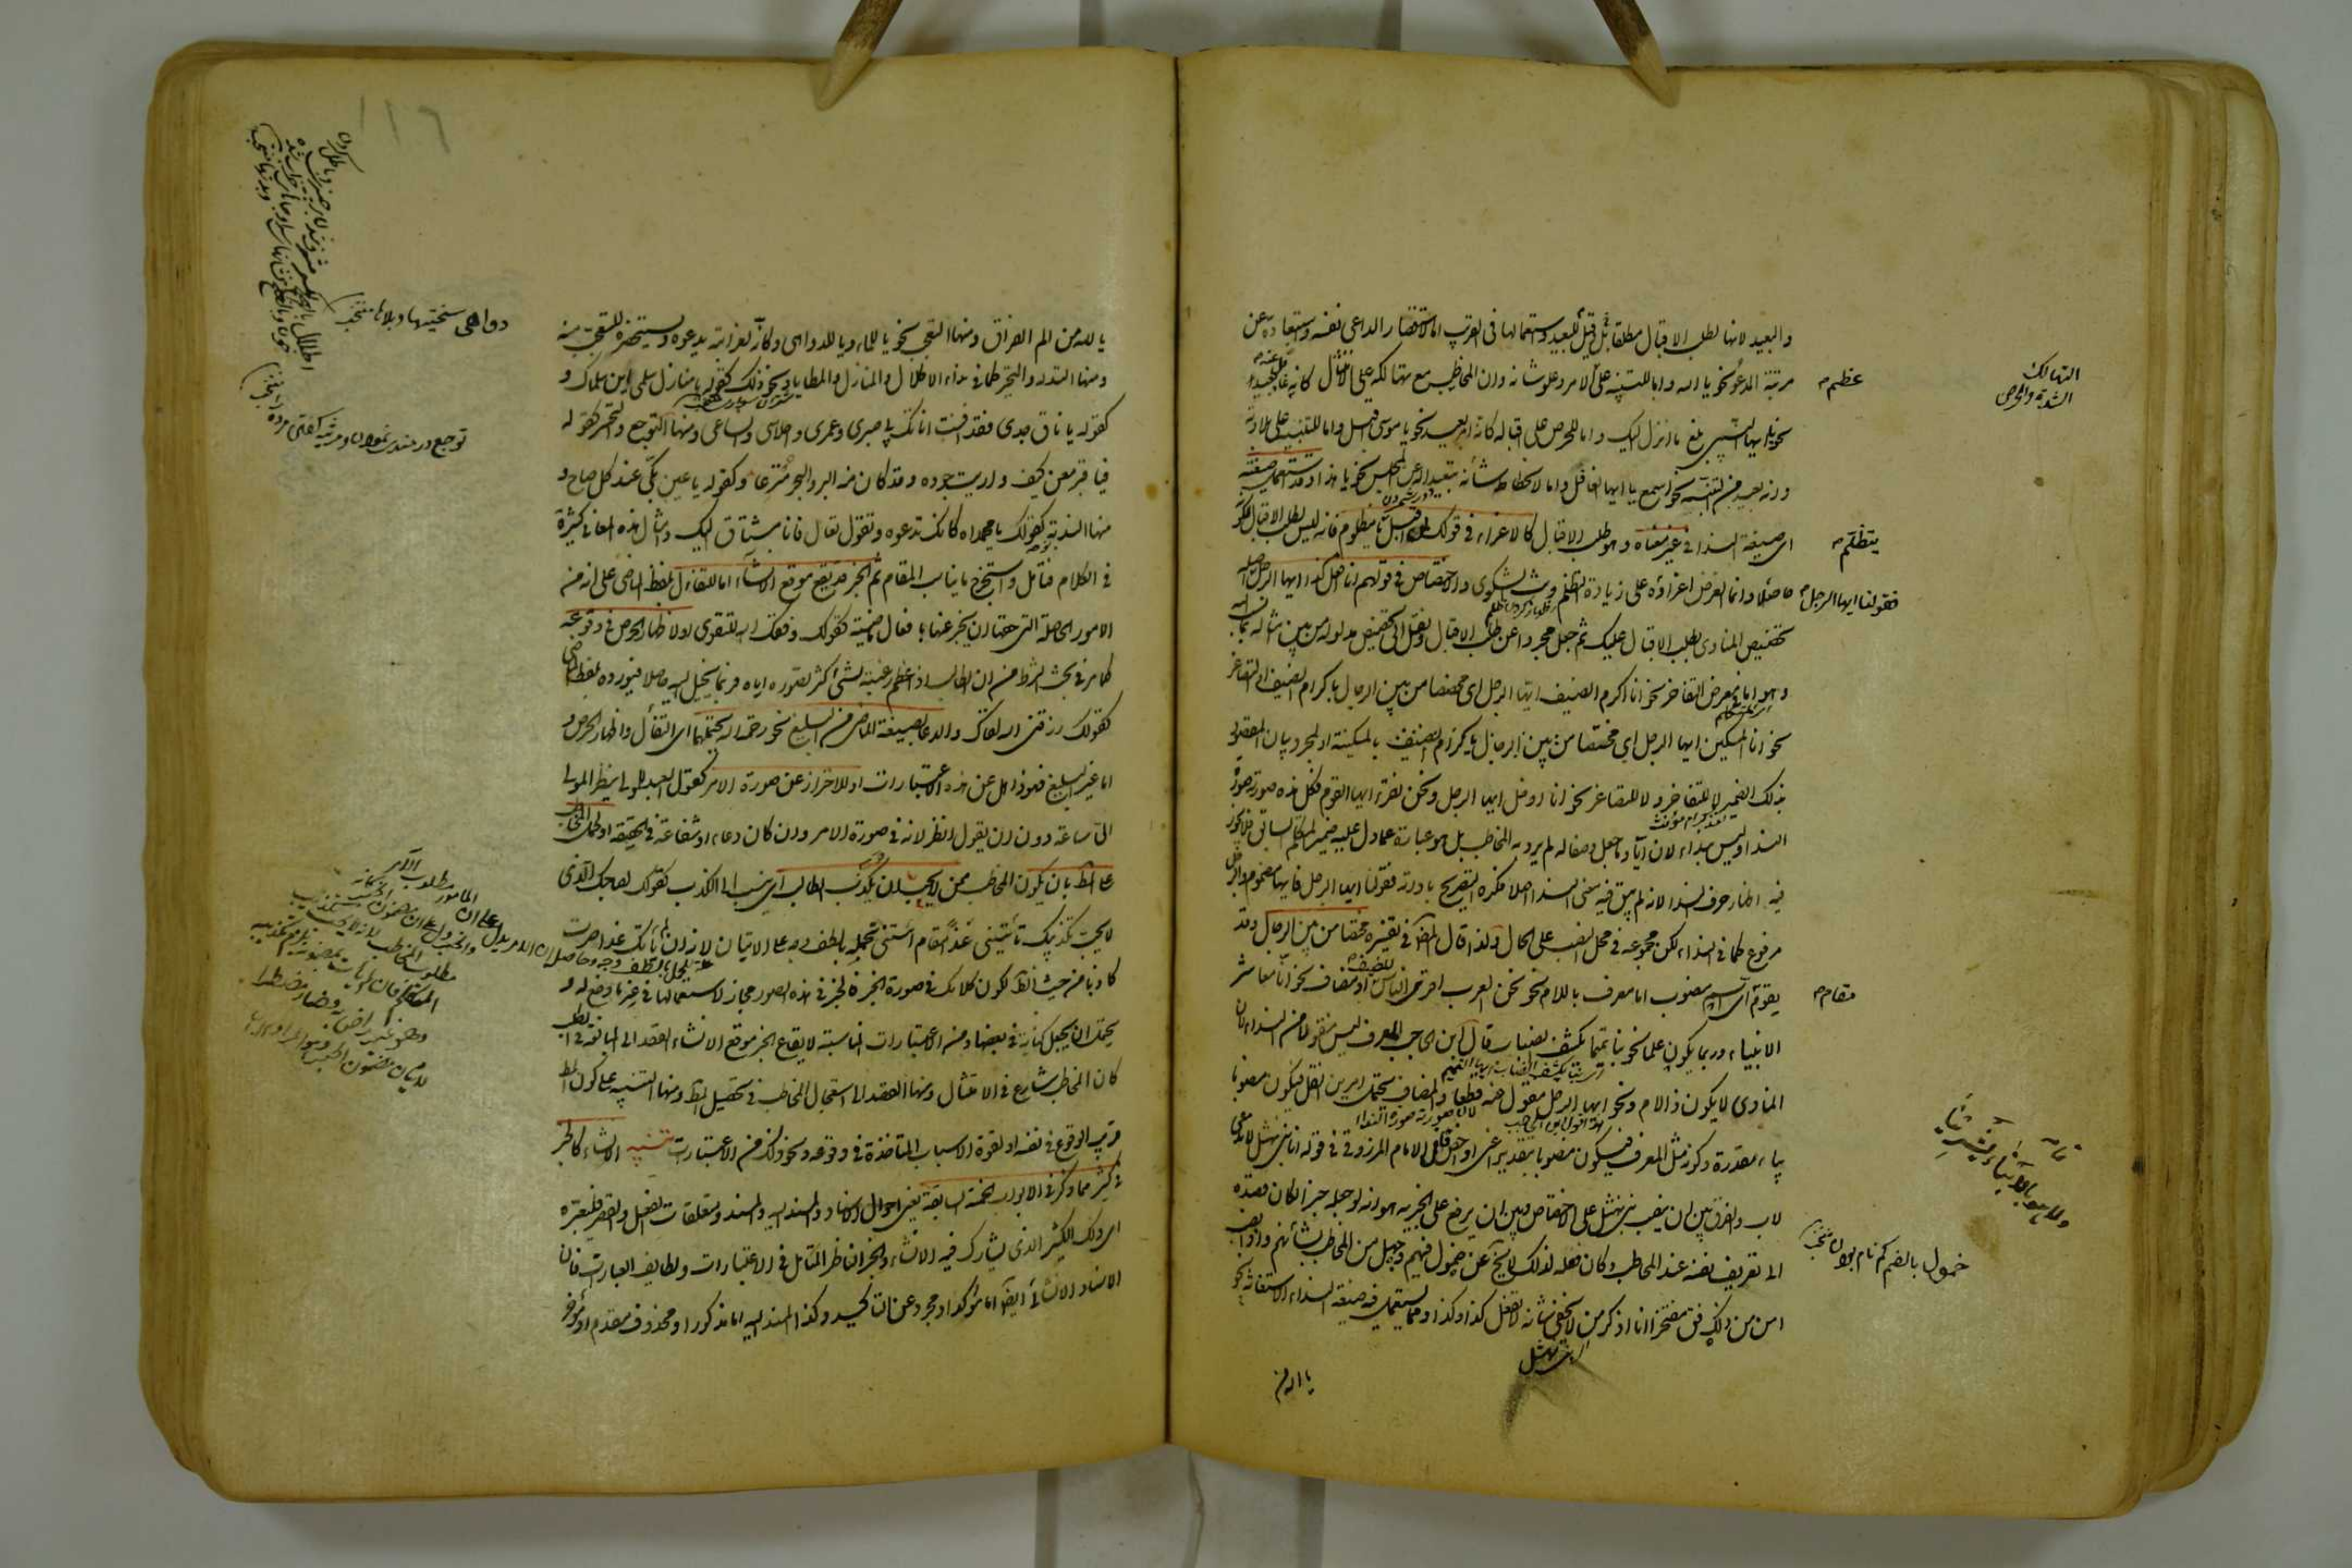 والبعيد لانها لطلب الاقبال مطلقا بل قيل للبعيد واستعمالها في القريب اما لاستقصار الداعي نفسه واستبعاده عن
مرتبة المدعو نحو يا الله واما للتنبيه على الامر وعلو شانه وان المخاطب مع تهالكه على الامتثال كانه غافل عنه بعيد
نحو يا ايها النبي بلغ ما انزل اليك واما للحرص على اقباله كانه امر بعيد نحو يا موسى اقبل واما للتنبيه على بلادته
وانه بعيد من التنبه نحو اسمع يا ايها الغافل واما لانحطاط شأنه تبعيدا له عن المجلس نحو يا هذا وقد تستعمل صيغته
اى صيغة الندا في غير معناه وهو طلب الاقبال كالاغراء في قولك لمن اقبل يا مظلوم فانه ليس لطلب الاقبال لكونه
حاصلا وانما الغرض اغراؤه على زيادة التظلم وبث الشكوى والاختصاص في قولهم انا افعل كذا ايها الرجل اصله
تخصيص المنادى بطلب الاقبال عليك ثم جعل مجردا عن طلب الاقبال ونقل الى تخصيص مدلوله من بين امثاله بما نسب اليه
وهو اما في معرض التفاخر نحو انا اكرم الضيف ايها الرجل اى مختصا من بين الرجال باكرام الضيف او التصاغر
نحو انا المسكين ايها الرجل اى مختصا من بين الرجال بالمسكنة او لمجرد بيان المقصود
بذلك الضمير لا للتفاخر ولا للتصاغر نحو انا ادخل ايها الرجل ونحن نقرأ ايها القوم فكل هذه صورته صورة
الندا وليس بنداء لان ايا وما جعل وصفا له لم يرد به المخاطب بل هو عبارة عما دل عليه ضمير المتكلم السابق فلا يجوز
فيه اظهار حرف الندا لانه لم يبق فيه معنى الندا اصلا فكره التصريح باداته فقولنا ايها الرجل فايها مضموم والرجل
مرفوع كما في النداء لكن مجموعه في محل النصب على الحال ولذا قال المص في تفسيره مختصا من بين الرجال وقد
يقوم مقام اى اسم منصوب اما معرف باللام نحو نحن العرب اقرى الناس للضيف او مضاف نحو انا معاشر
الانبياء وربما يكون علما نحو بنا تميما يكشف الضباب قال ابن الحاجب المعرف ليس منقولا من النداء لان
المنادى لا يكون ذا لام ونحو ايها الرجل منقول عنه قطعا والمضاف يحتمل امرين النقل فيكون منصوبا
بياء مقدرة وكونه مثل المعرف فيكون منصوبا بتقدير اعنى او اخص قال الامام المرزوقي في قوله انا بنى نهشل لا ندعى
لاب والفرق بين ان ينصب بنى نهشل على الاختصاص وبين ان يرفع على الخبرية هو انه لو جعله خبرا لكان قصده
الى تعريف نفسه عند المخاطب وكان فعله لذلك لا يخ عن خمول فيهم وجهل من المخاطب بشأنهم واذا نصب
امن من ذلك فق مفتخرا انا اذكر من لا يخفى شانه لا نفعل كذا وكذا ومما يستعمل فيه صيغة النداء الاستغاثة نحو
يا الله من
التهالك
الشدة والحرص
عظم
يتظلم
فقولنا ايها الرجل
مقام
خمول بالضم كم نام بودن
اى بنى نهشل
يا لله من الم الفراق ومنها التعجب نحو يا للماء ويا للدواهى وكأنه لغرابته يدعوه ويستحضره ليتعجب منه
ومنها التدله والتحير كما في نداء الاطلال والمنازل والمطايا ونحو ذلك كقوله يا منازل سلمى اين سلماك و
كقوله يا ناق جدى فقد افنت اناتك بي صبرى وعمرى واحلاسى وانساعى ومنها التوجع والتحسر كقوله
فيا قبر معن كيف واريت جوده وقد كان منه البر والبحر مترعا وكقوله يا عين بكى عند كل صباح و
منها الندبة كقولك يا محمداه كانك تدعوه وتقول تعال فانا مشتاق اليك وامثال هذه المعانى كثيرة
في الكلام فتامل واستخرج ما يناسب المقام ثم الخبر قد يقع موقع الانشاء اما للتفاءل بلفظ الماضى على انه من
الامور الحاصلة التي حقها ان يخبر عنها بافعال ماضية كقولك وفقك الله للتقوى او لاظهار الحرص في وقوعه
كما مر في بحث الشرط من ان الطالب اذا عظم رغبته في شىء كثر تصوره اياه فربما يخيل اليه حاصلا فيورده بلفظ الماضى
كقولك رزقنى الله لقاك والدعاء بصيغة الماضى من البليغ نحو رحمه الله يحتملهما اى التفاءل واظهار الحرص و
اما غير البليغ فهو ذاهل عن هذه الاعتبارات او للاحتراز عن صورة الامر كقول العبد للمولى ينظر المولى
الى ساعة دون ان يقول انظر لانه في صورة الامر وان كان دعاء او شفاعة في الحقيقة او لحمل المخاطب
على المط بان يكون المخاطب ممن لا يحب ان يكذب الطالب اى ينسب الى الكذب كقولك لصاحبك الذى
لا يحب تكذيبك تأتينى غدا مقام ائتنى تحمله بالطف وجه على الاتيان لانه ان لم يأتك غدا صرت
كاذبا من حيث الظ لكون كلامك في صورة الخبر فالخبر في هذه الصور مجاز لاستعمالها في غير ما وضع له و
يحتمل ان يجعل كناية في بعضها ومن الاعتبارات المناسبة لايقاع الخبر موقع الانشاء القصد الى المبالغة في الطلب
كان المخاطب سارع في الامتثال ومنها القصد الى استعجال المخاطب في تحصيل المط ومنها التنبيه على كون المط
قريب الوقوع في نفسه او لقوة الاسباب المتاخذة في وقوعه ونحو ذلك من الاعتبارات تنبيه الانشاء كالخبر
في كثير مما ذكر في الابواب الخمسة السابقة يعنى احوال الاسناد والمسند اليه والمسند ومتعلقات الفعل والقصر فليعتبره
اى ذلك الكثير الذى يشارك فيه الانشاء والخبر الناظر المتامل في الاعتبارات ولطايف العبارات فان
الاسناد الانشائى ايضا اما مؤكد او مجرد عن التأكيد وكذا المسند اليه اما مذكور او محذوف مقدم او مؤخر
١١٦
دواهى سختيها وبلاها
توجع دردمند نمودن ومرثيه گفتن مرده را